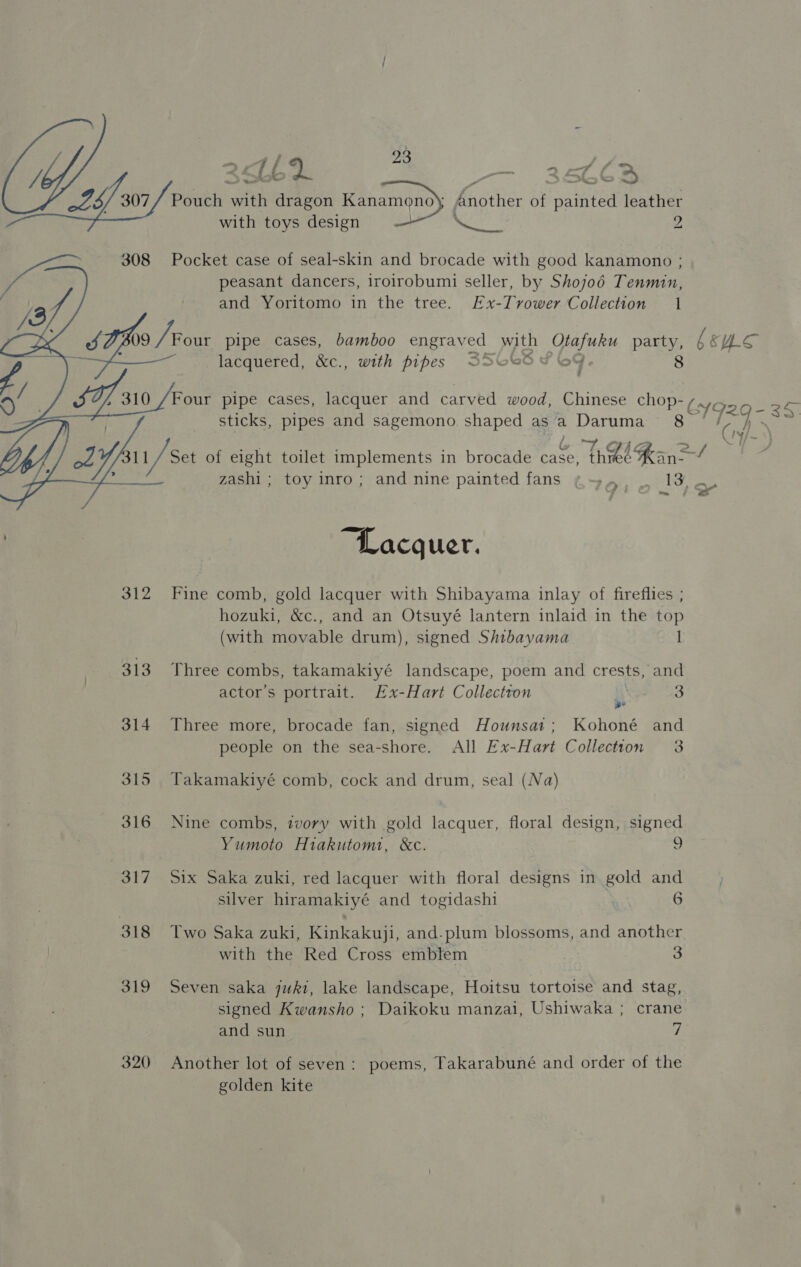 23
307 Pouch with dragon Kanamono; another of painted leather
with toys design 2
308 Pocket case of seal-skin and brocade with good kanamono ;
peasant dancers, iroirobumi seller, by Shojoó Tenmin,
and Yoritomo in the tree. Ex-Trower Collection 1
309 Four pipe cases, bamboo engraved with Otafuku party,
lacquered, &c., with pipes 8
310 Four pipe cases, lacquer and carved wood, Chinese chop-
sticks, pipes and sagemono shaped as a Daruma 8
311 Set of eight toilet implements in brocade case, three Kan-
zashi ; toy inro ; and nine painted fans 13
Lacquer.
312 Fine comb, gold lacquer with Shibayama inlay of fireflies ;
hozuki, &c., and an Otsuyé lantern inlaid in the top
(with movable drum), signed Shibayama 1
313 Three combs, takamakiyé landscape, poem and crests, and
actor's portrait. Ex-Hart Collection 3
314 Three more, brocade fan, signed Hounsai ; Kohoné and
people on the sea-shore. All Ex-Hart Collection 3
315 Takamakiyé comb, cock and drum, seal (Na)
316 Nine combs, ivory with gold lacquer, floral design, signed
Yumoto Hiakutomi, &c. 9
317 Six Saka zuki, red lacquer with floral designs in gold and
silver hiramakiyé and togidashi 6
318 Two Saka zuki, Kinkakuji, and plum blossoms, and another
with the Red Cross emblem 3
319 Seven saka juki, lake landscape, Hoitsu tortoise and stag,
signed Kwansho ; Daikoku manzai, Ushiwaka ; crane
and sun 7
320 Another lot of seven : poems, Takarabuné and order of the
golden kite